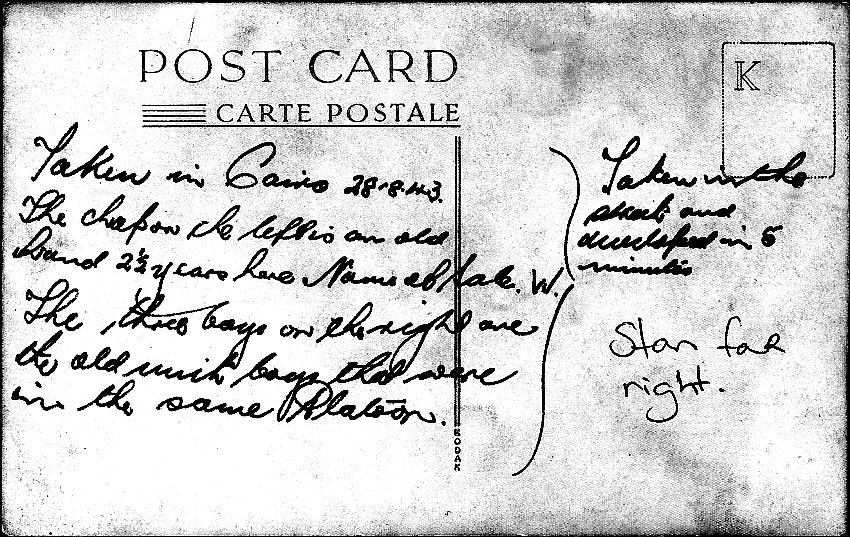 POST CARD
CARTE POSTALE
K
Taken in Cairo 28-8-43.
The chap on the left is an old
hand 2½ years here Name of Jak. W.
The three boys on the right are
the old unit boys that were
in the same Platoon.
KODAK
Taken in the
street and
developed in 5
minutes
Stan far
right.